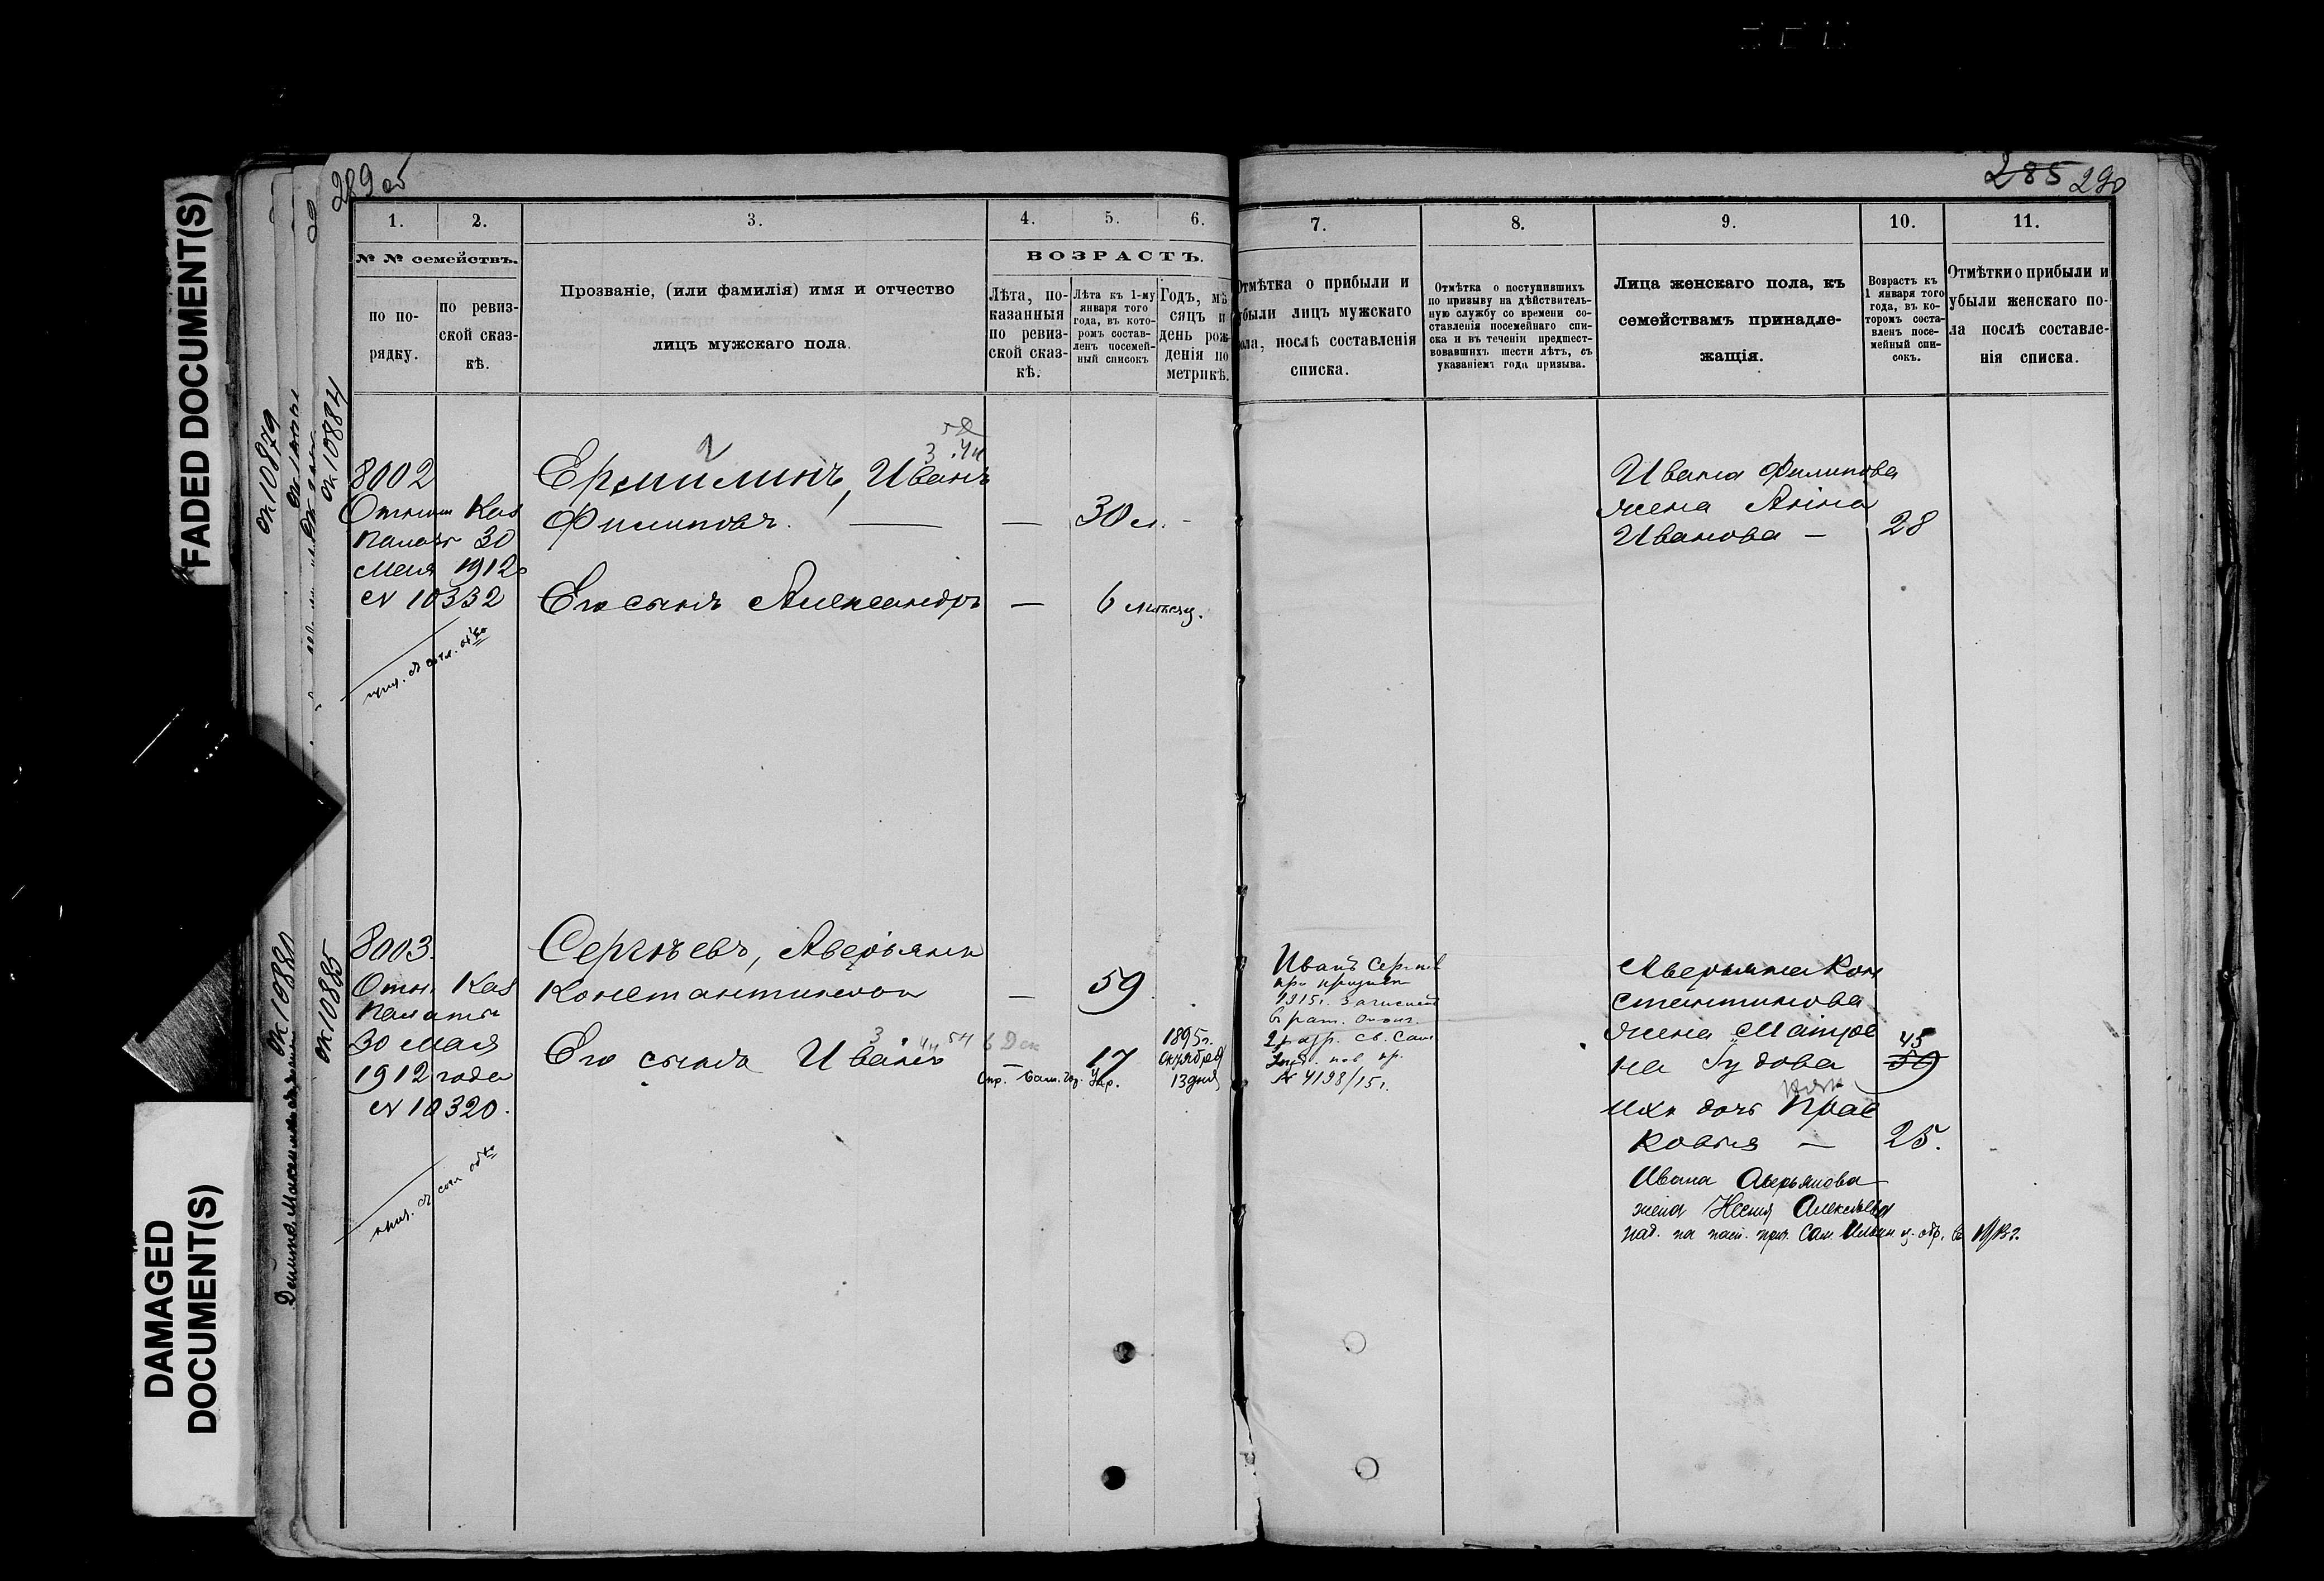 FADED DOCUMENT(S)
DAMAGED DOCUMENT(S)
289 об
285 290
ок 10879
ок 10884
ок 10880
ок 10885
1. 2. 3. 4. 5. 6. 7. 8. 9. 10. 11.
№ № семействъ.
по по-
рядку.
по ревиз-
ской сказ-
кѣ.
Прозваніе, (или фамилія) имя и отчество
лицъ мужскаго пола.
ВОЗРАСТЪ.
Лѣта, по-
казанныя
по ревиз-
ской сказ-
кѣ.
Лѣта къ 1-му
января того
года, въ кото-
ромъ состав-
ленъ посемей-
ный списокъ
Годъ, мѣ-
сяцъ и
день рож-
денія по
метрикѣ.
Отмѣтка о прибыли и
убыли лицъ мужскаго
пола, послѣ составленія
списка.
Отмѣтка о поступившихъ
по призыву на дѣйствитель-
ную службу со времени со-
ставленія посемейнаго спи-
ска и въ теченіи предшест-
вовавшихъ шести лѣтъ, съ
указаніемъ года призыва.
Лица женскаго пола, къ
семействамъ принадле-
жащія.
Возрастъ къ
1 января того
года, въ ко-
торомъ соста-
вленъ посе-
мейный спи-
сокъ.
Отмѣтки о прибыли и
убыли женскаго по-
ла послѣ составле-
нія списка.
8002
Отнош Каз
Палаты 30
Мая 1912
№ 10332
Ермилинъ, Иванъ
Филиповъ. — — 30 л. -
Его сынъ Александръ — 6 мѣсяц.
Ивана Филипова
жена Анна
Иванова — 28
8003.
Отнш. Каз
Палаты
30 мая
1912 года
№ 10320.
Сергѣевъ, Аверьянъ
Константиновъ — 59
Его сынъ Иванъ 17
6 Дек
1895 г.
октября
13 дня
Иванъ Сергѣев
при призывѣ
1915 г. зачислен
в рат. опол.
№ 4198/15 г.
Аверьяна Кон
стантинова
жена Матре
на Гудова 45 50
ихъ дочь Прас
ковья — 25.
Ивана Аверьянова
жена Ксенія Алексѣева